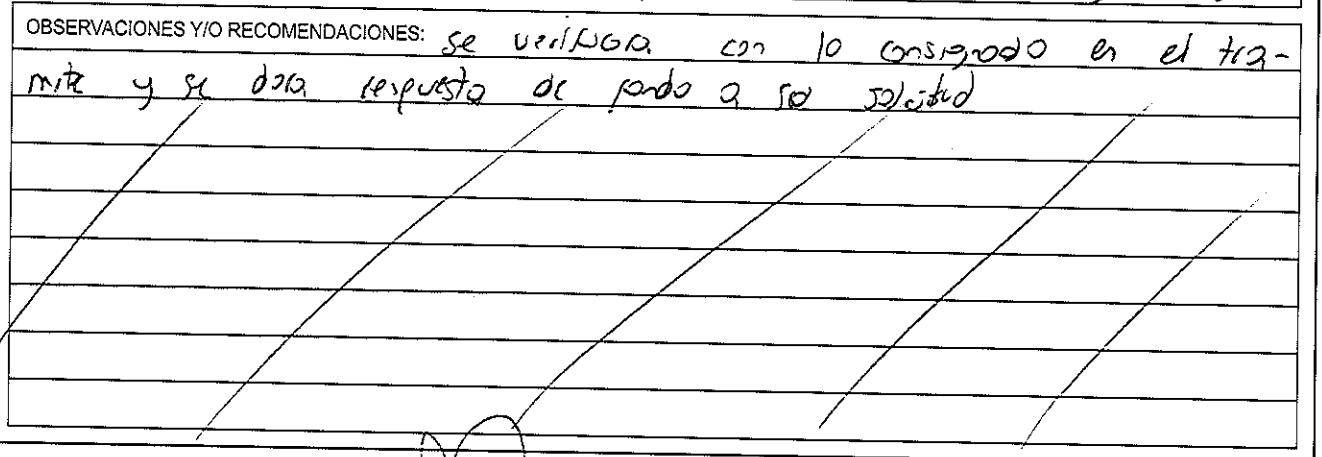 OBSERVACIONES Y/O RECOMENDACIONES: se verificara con lo consignado en el tra-
mite y se dara respuesta de fondo a su solicitud